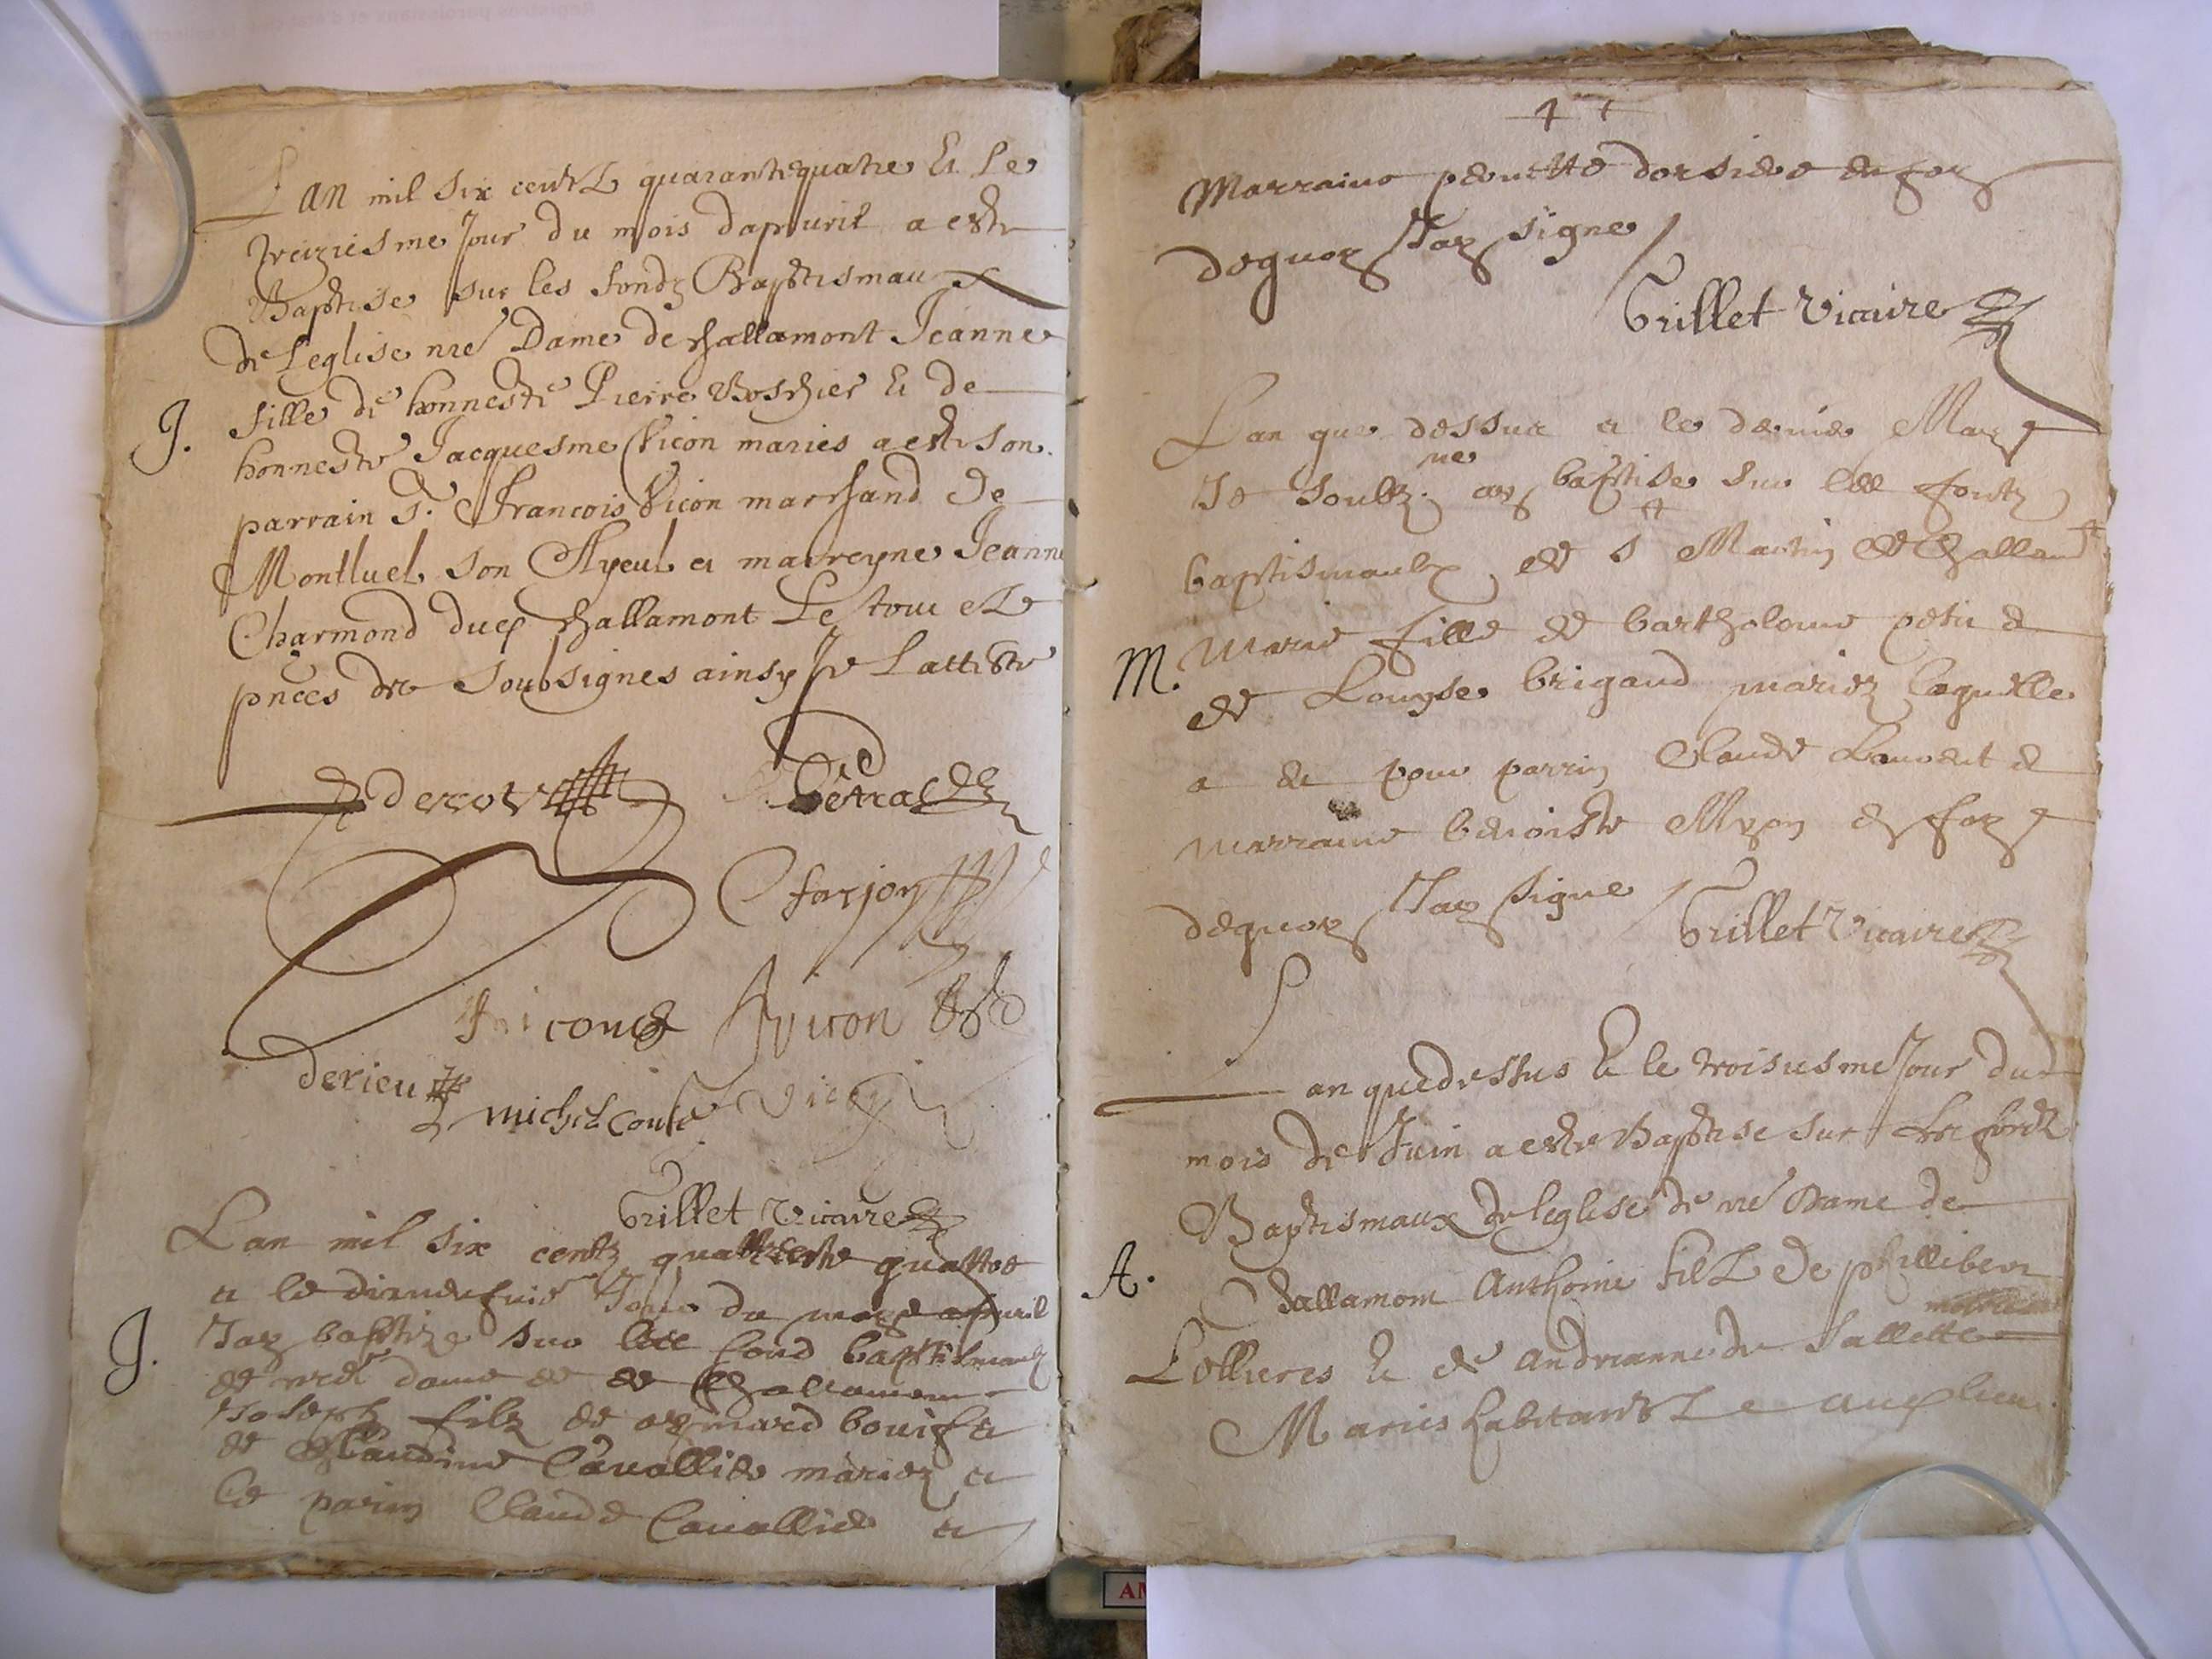 Lan mil six centz quarantequatre Et le
treziesme Jour du mois dapuril a este
Baptise sur les fondz Baptismaux
de Leglise nre Dame de challamont Jeanne
J. fille de honneste Pierre Boschier Et de
honneste Jacquesme Vicon maries a este son
parrain Sr. Francois Vicon marchand de
Montluel son Ayeul et marreyne Jeanne
Charmond dud challamont Le tout
pnces des soubsignes ainsy Je Latteste
derieu
michel conte
Trillet Vicaire
Lan mil six centz quattre
a le Jour du apuril
J. Jay baptize sur les fond baptismaulx
de nre dame de de Challamont
Joseph filz de aymard bouif et
de Claudine Cavallier mariez et
le parin Claude Cavallier et
Marraine dorsiere en foy
dequoy Jay signe
Trillet Vicaire
Lan que dessus et le dernier May
Je soubz. ne ay baptise sur les fontz
baptismaulx de St Martin de Challamt
M. Marie fille de bartholome petit et
de Louyse brigaud mariez laquelle
a eu pour parrin Claude Laurent et
marraine benoiste en foy
dequoy Jay signe
Trillet Vicaire
Lan que dessus Et le troisiesme Jour du
mois de Juin a este Baptise sur Les fondz
Baptismaux de leglise de nre Dame de
A. Challamont Anthoine filz de phillibert
Lollieres Et de andreanne de Sallette
Maries habitantz aud lieu